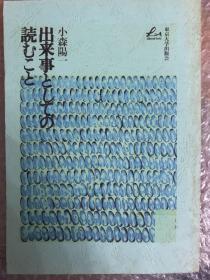 東京大学出版会
小森陽一
出来事としての
読むこと